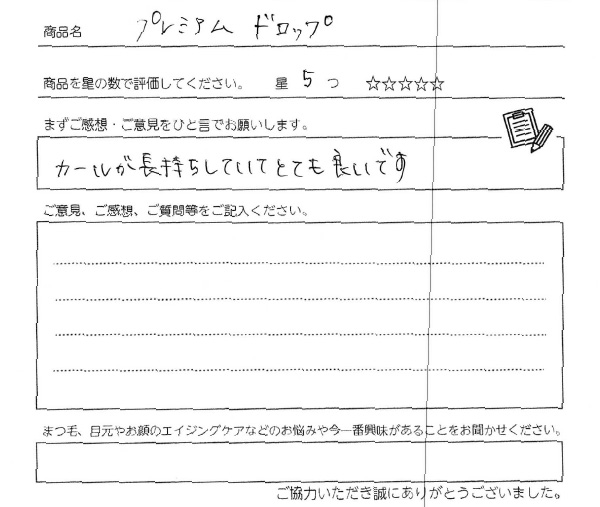 商品名 プレミアム ドロップ
商品を星の数で評価してください。 星 5 つ ☆☆☆☆☆
まずご感想・ご意見をひと言でお願いします。
カールが長持ちしていてとても良いです
ご意見、ご感想、ご質問等をご記入ください。
まつ毛、目元やお顔のエイジングケアなどのお悩みや今一番興味があることをお聞かせください。
ご協力いただき誠にありがとうございました。